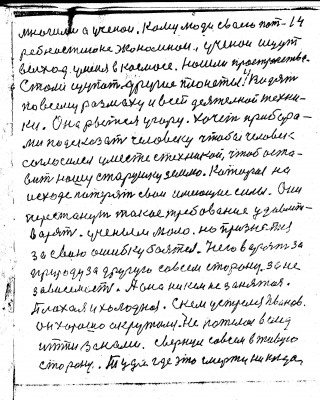 многими а ученои. Кому люди свою пот- 14
ребностью не экономной, ученои ищут
выход умея в космосе. Нашли пространство.
Стали щупать другие планеты! Водят
по всему размаху и всей деятелной техни-
ки. Она рвется угору. Хочет прибора-
ми подсказать человеку чтобы человек
согласился уместе стехникой, чтоб оста-
вит нашу старущу землю. Которая на
исходе потерят свои имеющие силы. Они
перестанут такое требование удовлит-
варят. ученым мало. но признятия
за свою ошибку боятся. Чего варят за
природу за другую совсем сторону, за не
зависемость. А она никем не занятоя.
Плохая и холодноя. С кем устрелся Иванов.
он хорошо окружому. Не потелся вслед
итти за ними. свернул совсем в живую
сторону. Туда где это смерти никогда